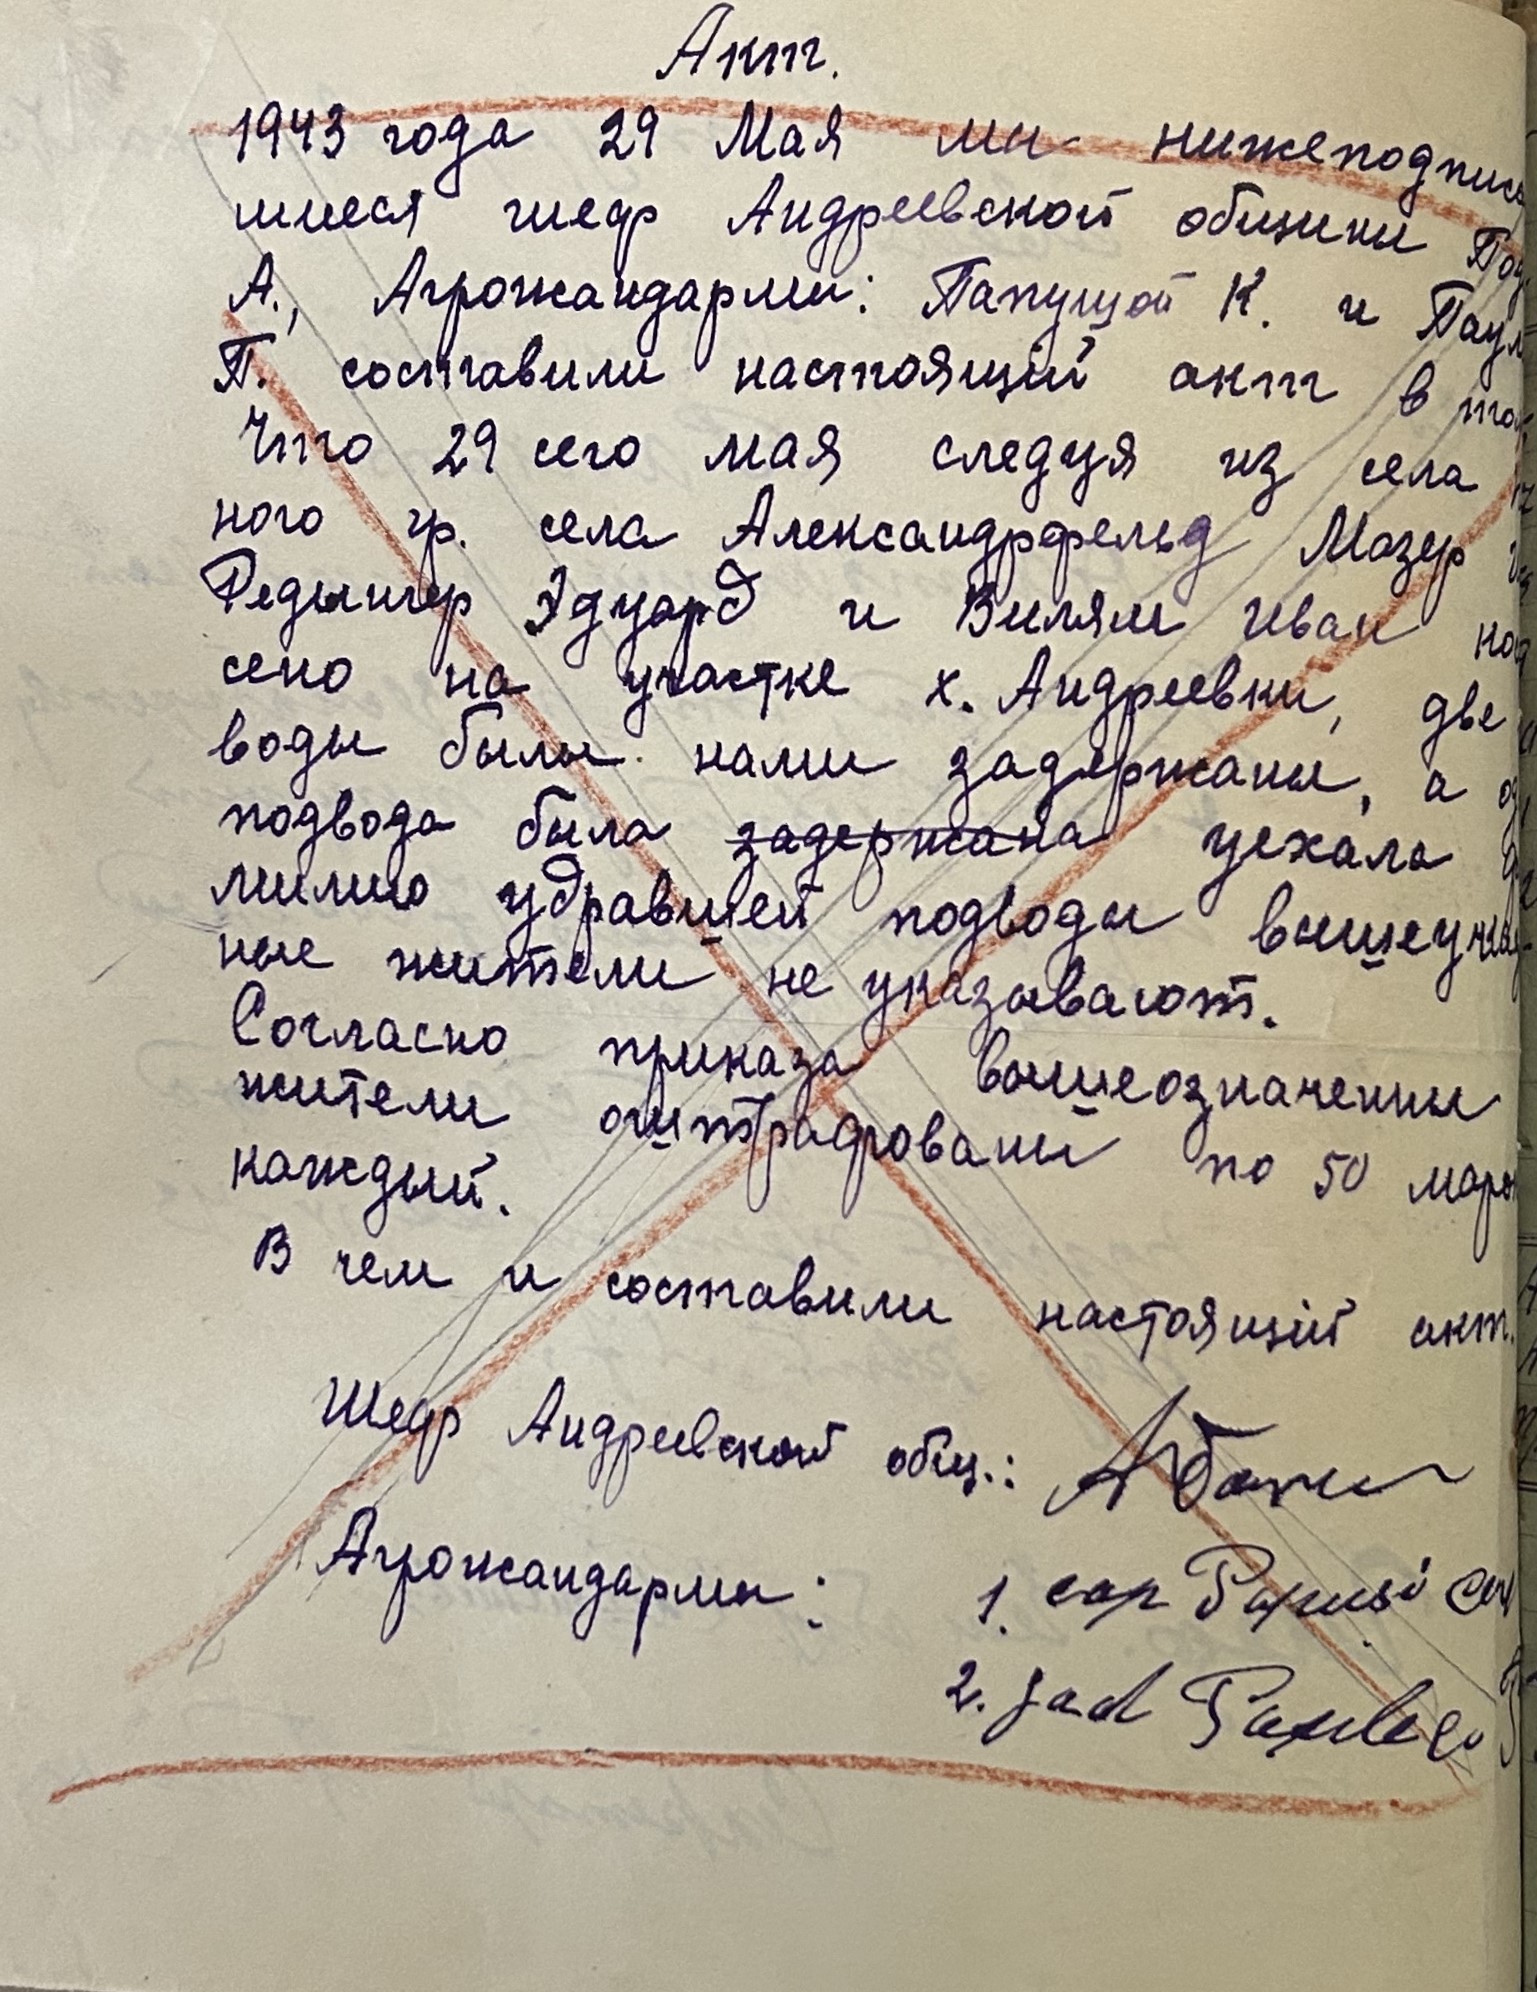 Акт.
1943 года 29 Мая мы нижеподпис
шиеся шеф Андреевской общины
А., Агрожандармы: Папушой К. и Паул
П. составили настоящий акт в том
Что 29 сего мая следуя из села
ного гр. села Александрфельд Мозер
Редингер Эдуард и Вилям Иван
сено на участке х. Андреевки, две
воды были нами задержаны, а
подвода была задержана уехала
милию удравшей подводы вышеука
ные жители не указывают.
Согласно приказа вышеозначенны
жители оштрафованы по 50 марок
каждый.
В чем и составили настоящий акт.
Шеф Андреевской общ.:
Агрожандармы: 1. cap
2. jad